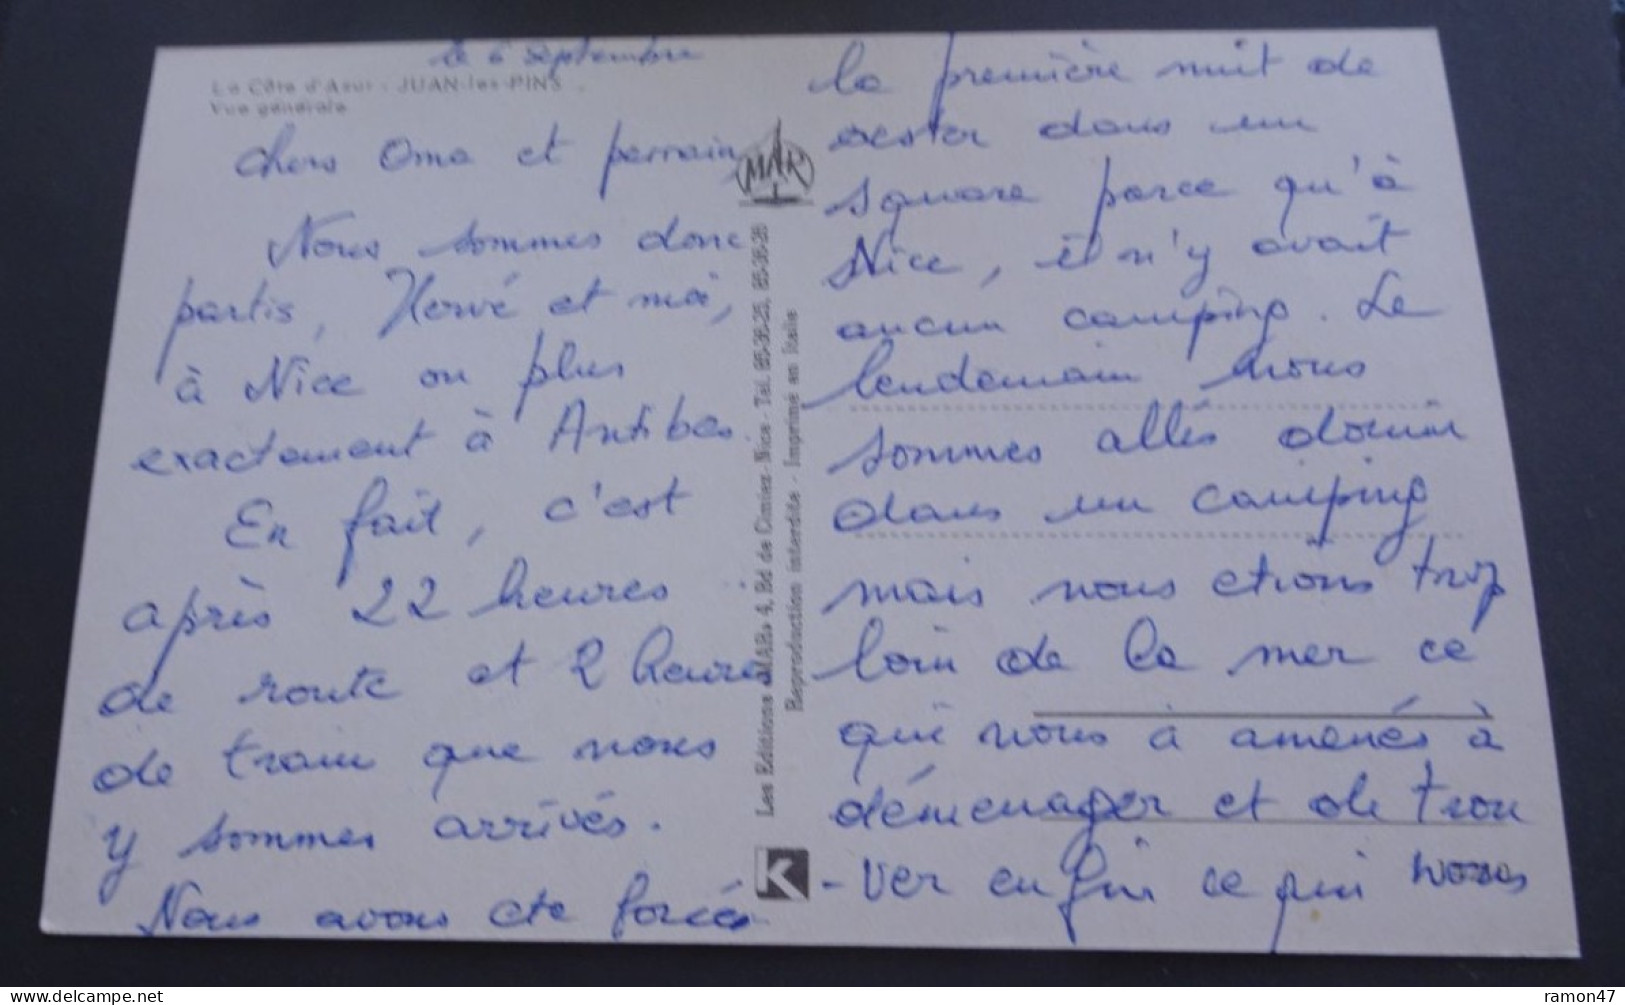 le 6 Septembre
La Côte d'Azur - JUAN-les-PINS
Vue générale
chers Oma et parrain,
Nous sommes donc
partis, Hervé et moi,
à Nice ou plus
exactement à Antibes.
En fait, c'est
après 22 heures
de route et 2 heures
de train que nous
y sommes arrivés.
Nous avons été forcés
MAR
Les Editions «MAR» 4, Bd de Cimiez - Nice - Tél. 85-36-25, 85-36-26
Reproduction interdite - Imprimé en Italie
K
la première nuit de
rester dans un
square parce qu'à
Nice, il n'y avait
aucun camping. Le
lendemain nous
sommes allés dormir
dans un camping
mais nous etions trop
loin de la mer ce
qui nous à amenés à
déménager et de trou
-ver enfin ce qui nous
delcampe.net
ramon47